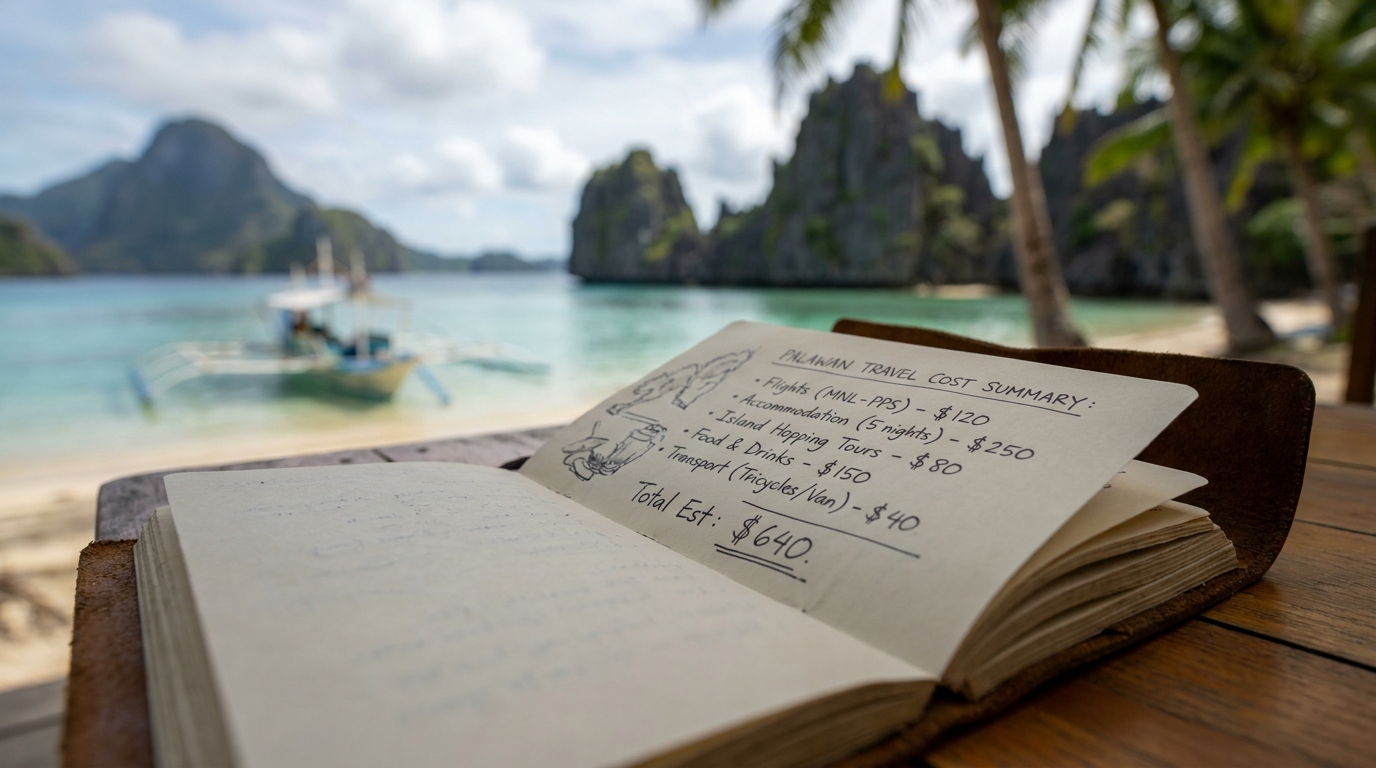 PALAWAN TRAVEL COST SUMMARY:
• Flights (MNL-PPS) - $120
• Accommodation (5 nights) - $250
• Island Hopping Tours - $80
• Food & Drinks - $150
• Transport (Tricycles/Van) - $40
Total Est: $640.